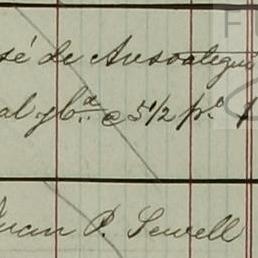 sé de Ansoategui
al y ba. @ 5 1/2 p.o
Juan P. Sewell